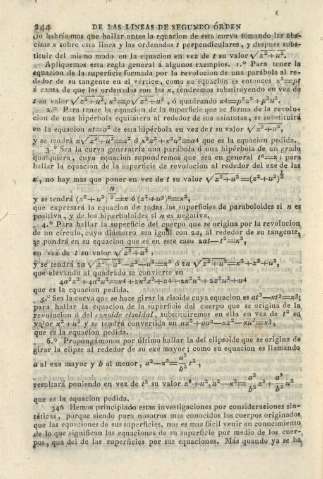 242 DE LAS LÍNEAS DE SEGUNDO ÓRDEN
do habríamos que hallar antes la equacion de esta curva tomando las abs-
cisas x sobre esta línea y las ordenadas t perpendiculares, y despues subs-
tituir del mismo modo en la equacion en vez de t su valor √z²+u².
Apliquemos esta regla general á algunos exemplos. 1.º Para tener la
equacion de la superficie formada por la revolucion de una parábola al re-
dedor de su tangente en el vértice, como su equacion es entonces x²=pt
á causa de que las ordenadas son las x, tendremos substituyendo en vez de
t su valor √z²+u², x²=p√z²+u², ó quadrando x⁴=p²z²+p²u².
2.º Para tener la equacion de la superficie que se forma de la revolu-
cion de una hipérbola equilátera al rededor de sus asíntotas, se substituirá
en la equacion xt=a² de esta hipérbola en vez de t su valor √z²+u²,
y se tendrá x√z²+u²=a² ó x²z²+x²u²=a⁴ que es la equacion pedida.
3.º Sea la curva generatriz una parábola ó una hipérbola de un grado
qualquiera, cuya equacion supondremos que sea en general tⁿ=x; para
hallar la equacion de la superficie de revolucion al rededor del exe de las
x, no hay mas que poner en vez de t su valor √z²+u²=(z²+u²)
y se tendrá
que expresará la equacion de todas las superficies de paraboloides si n es
positiva, y de los hiperboloides si n es negativa.
4.º Para hallar la superficie del cuerpo que se origina por la revolucion
de un círculo, cuyo diámetro sea igual con 2a, al rededor de su tangente,
se pondrá en su equacion que es en este caso 2at−t²=x²,
en vez de t su valor √z²+u²,
y se tendrá
que elevando al quadrado se convierte en
que es la equacion pedida.
5.º Sea la curva que se hace girar la cisoide cuya equacion es
para hallar la equacion de la superficie del cuerpo que se origina de la
revolucion ó del conoide cisoidal, substituiremos en ella en vez de t² su
valor z²+u² y se tendrá convertida en
que es la equacion pedida.
6.º Propongámonos por último hallar la del elipsoide que se origina de
girar la elipse al rededor de su exe mayor; como su equacion es llamando
a al exe mayor y b al menor,
resultará poniendo en vez de t² su valor z²+u²,
que es la equacion pedida.
346 Hemos principiado estas investigaciones por consideraciones sin-
téticas, porque siendo para nosotros mas conocidos los cuerpos originados
que las equaciones de sus superficies, nos es mas fácil venir en conocimiento
de lo que significan las equaciones de su superficie por medio de los cuer-
pos, que del de las superficies por sus equaciones. Mas quando ya se ha